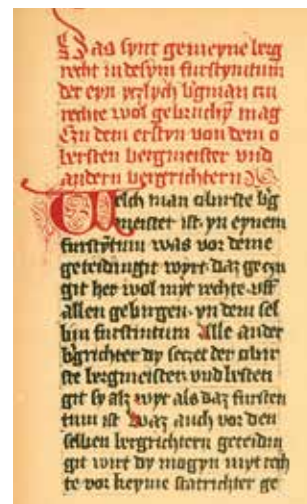 Das synt gemeyne berg
recht in desym furstyntum
der eyn yczlych b'gman czu
rechte wol gebruchn mag
Czu dem erstyn von dem o
bersten bergmeister vnd
andern bergrichtern
Welch man obirste b'g
meister ist· yn eynem
furstētum was vor deme
geteidingit wyrt· daz geczu
git her wol myt rechte· uff
allen gebirgen· yn dem sel
bin furstintum Alle ander
b'grichter dy seczet der obir
ste bergmeister· vnd besteti
git sy alz wyt als daz fursten
tum ist Waz auch vor den
selben bergrichtern geteidin
git wirt dy mogyn myt rech
te vor keyme statrichter ge